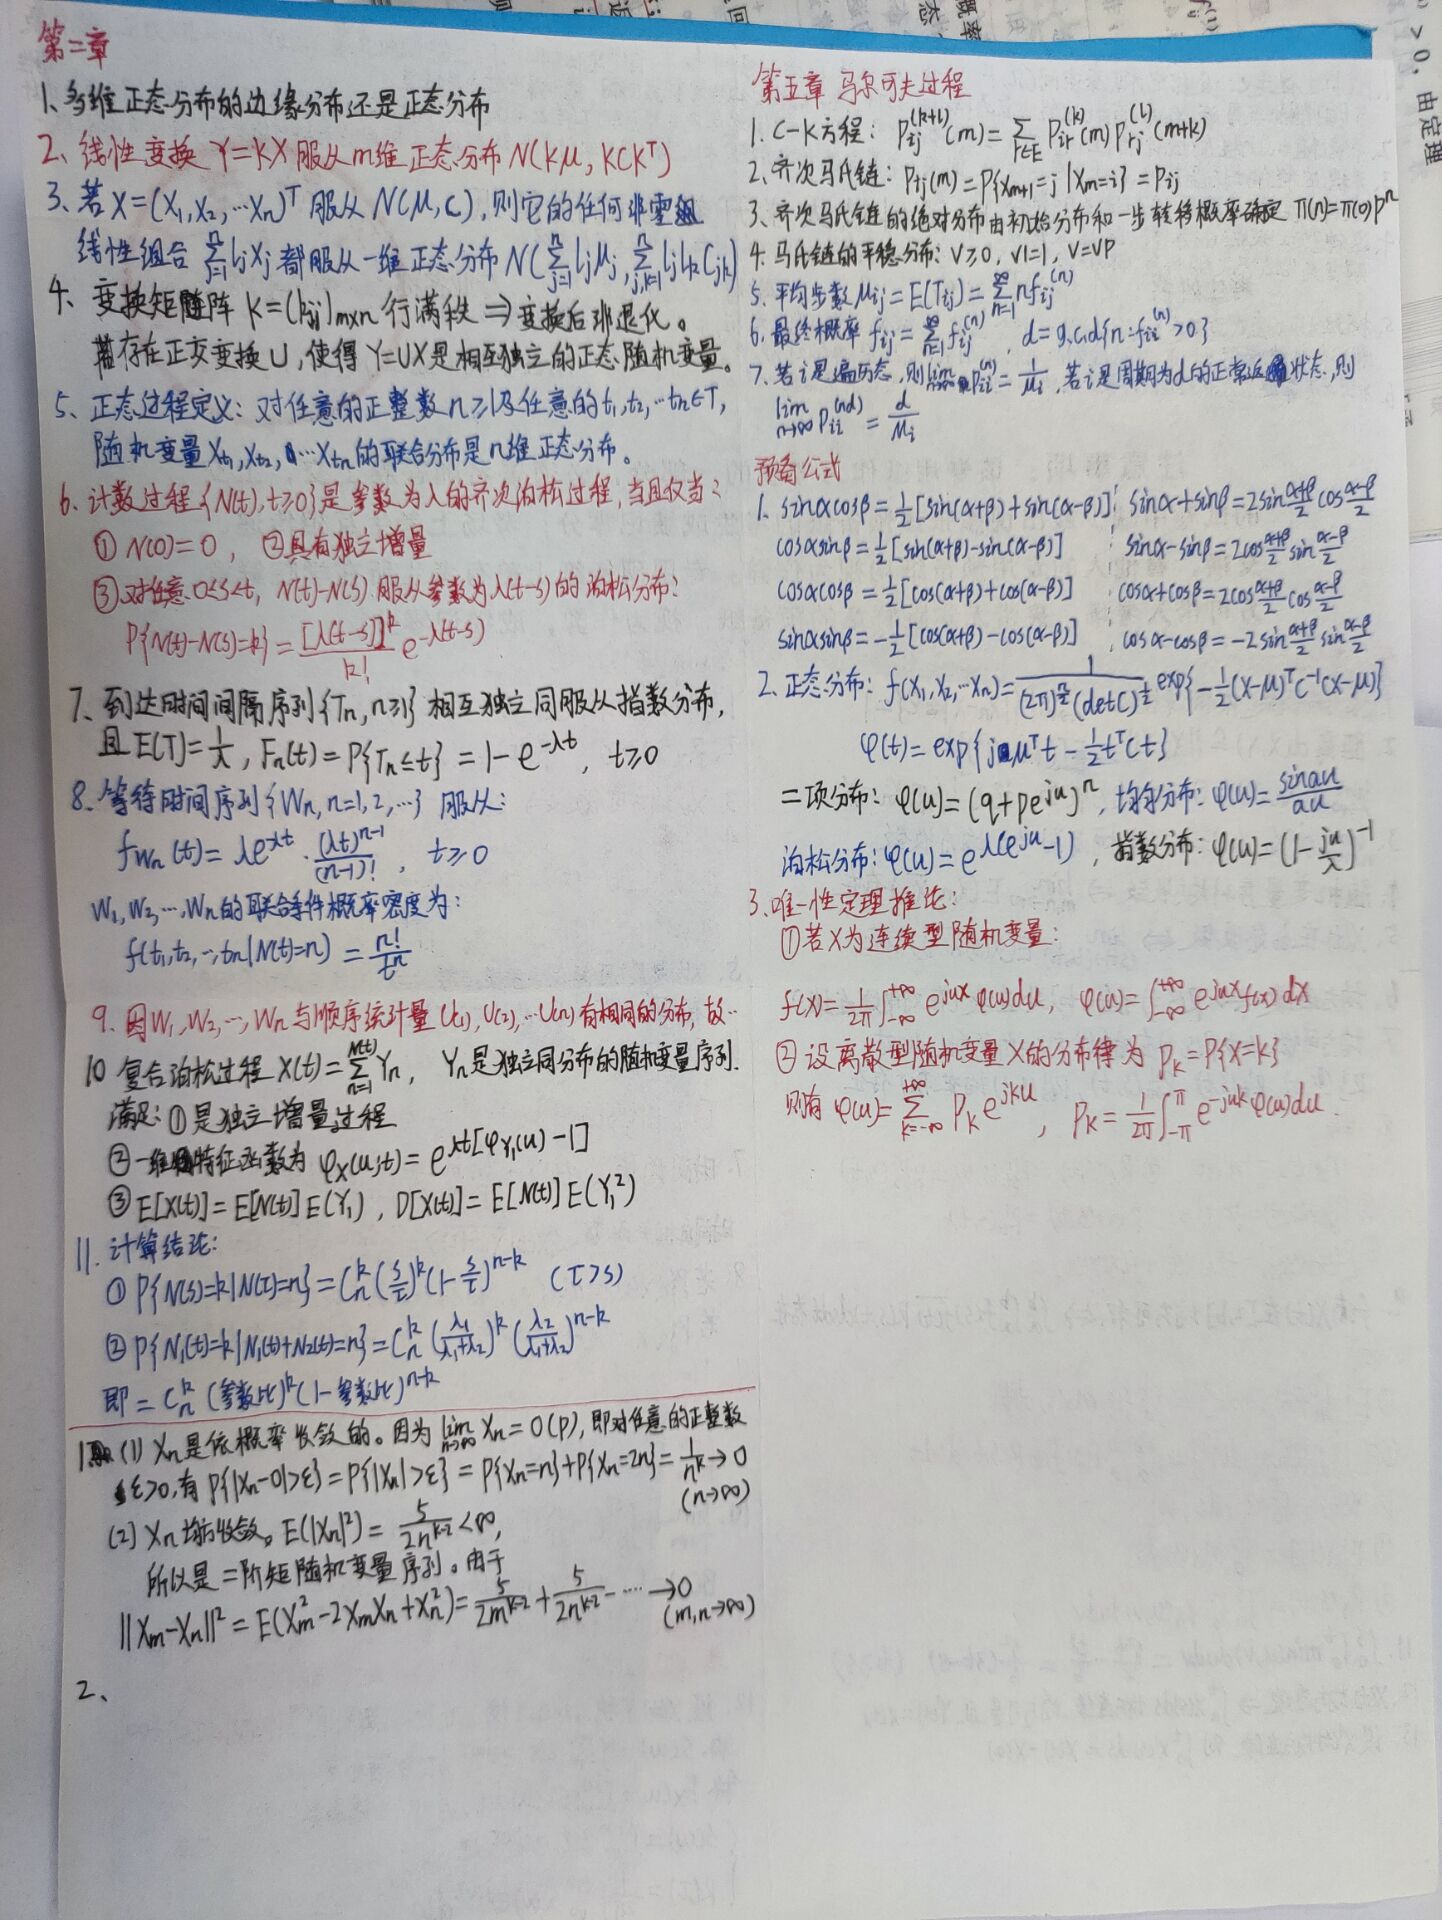 第二章
1、多维正态分布的边缘分布还是正态分布
2、线性变换 Y=KX 服从m维正态分布 N(Kμ, KCKᵀ)
3、若 X=(X₁,X₂,…Xn)ᵀ 服从 N(μ,C), 则它的任何非零组
线性组合 ∑_{j=1}^{n} ljXj 都服从一维正态分布 N(∑_{j=1}^{n} ljμj, ∑_{j,k=1}^{n} ljlkCjk)
4、变换矩阵 K=(kij)m×n 行满秩 ⇒ 变换后非退化。
若存在正交变换U, 使得 Y=UX是相互独立的正态随机变量。
5、正态过程定义: 对任意的正整数 n≥1及任意的t₁,t₂,…tn∈T,
随机变量 Xt₁,Xt₂,…Xtn的联合分布是n维正态分布。
6、计数过程{N(t),t≥0}是参数为λ的齐次泊松过程,当且仅当:
① N(0)=0, ②具有独立增量
③对任意 0≤s<t, N(t)-N(s) 服从参数为λ(t-s)的泊松分布:
P{N(t)-N(s)=k} = [λ(t-s)]^k / k! e^{-λ(t-s)}
7、到达时间间隔序列{Tn,n≥1}相互独立同服从指数分布,
且E(T)=1/λ, Fn(t)=P{Tn≤t}=1-e^{-λt}, t≥0
8、等待时间序列{Wn,n=1,2,…}服从:
fWn(t)= λe^{-λt}·(λt)^{n-1}/(n-1)!, t≥0
W₁,W₂,…,Wn的联合条件概率密度为:
f(t₁,t₂,…,tn|N(t)=n) = n!/tⁿ
9、因W₁,W₂,…,Wn与顺序统计量U(1),U(2),…U(n)有相同的分布,故…
10 复合泊松过程 X(t)=∑_{n=1}^{N(t)} Yn, Yn是独立同分布的随机变量序列.
满足:①是独立增量过程
②一维特征函数为 φX(u;t)=e^{λt[φY₁(u)-1]}
③E[X(t)]=E[N(t)]E(Y₁), D[X(t)]=E[N(t)]E(Y₁²)
11. 计算结论:
① P{N(s)=k|N(τ)=n}=C_n^k(s/τ)^k(1-s/τ)^{n-k} (τ>s)
② P{N₁(t)=k|N₁(t)+N₂(t)=n}=C_n^k(λ₁/(λ₁+λ₂))^k(λ₂/(λ₁+λ₂))^{n-k}
即=C_n^k(参数比)^k(1-参数比)^{n-k}
1. (1) Xn是依概率收敛的。因为lim_{n→∞} Xn=0(P),即对任意的正整数
ε>0,有P{|Xn-0|>ε}=P{|Xn|>ε}=P{Xn=n}+P{Xn=2n}=1/n^k→0
(n→∞)
(2) Xn均方收敛。E(|Xn|²)=5/(2n^{k-2})<∞,
所以是二阶矩随机变量序列。由于
||Xm-Xn||²=E(Xm²-2XmXn+Xn²)=5/(2m^{k-2})+5/(2n^{k-2})-……→0
(m,n→∞)
2、
第五章 马尔可夫过程
1. C-K方程: Pij^{(k+l)}(m)=∑_{r∈E} Pir^{(k)}(m)Prj^{(l)}(m+k)
2、齐次马氏链: Pij(m)=P{Xm+1=j|Xm=i}=Pij
3、齐次马氏链的绝对分布由初始分布和一步转移概率确定 π(n)=π(0)Pⁿ
4. 马氏链的平稳分布: V≥0, V1=1, V=VP
5. 平均步数 μij=E(Tij)=∑_{n=1}^{∞} nfij^{(n)}
6. 最终概率 fij=∑_{n=1}^{∞} fij^{(n)}, d=g.c.d{n:fii^{(n)}>0}
7、若i是遍历态,则lim_{n→∞} Pii^{(n)}=1/μi, 若i是周期为d的正常返状态,则
lim_{n→∞} Pii^{(nd)}=d/μi
预备公式
1. sinαcosβ=½[sin(α+β)+sin(α-β)] sinα+sinβ=2sin(α+β)/2 cos(α-β)/2
cosαsinβ=½[sin(α+β)-sin(α-β)] sinα-sinβ=2cos(α+β)/2 sin(α-β)/2
cosαcosβ=½[cos(α+β)+cos(α-β)] cosα+cosβ=2cos(α+β)/2 cos(α-β)/2
sinαsinβ=-½[cos(α+β)-cos(α-β)] cosα-cosβ=-2sin(α+β)/2 sin(α-β)/2
2、正态分布: f(x₁,x₂,…xn)=1/((2π)^{n/2}(detC)^{1/2}) exp{-½(x-μ)ᵀC⁻¹(x-μ)}
φ(t)=exp{jμᵀt-½tᵀCt}
二项分布: φ(u)=(q+pe^{ju})ⁿ, 均匀分布: φ(u)=sinau/au
泊松分布: φ(u)=e^{λ(e^{ju}-1)}, 指数分布: φ(u)=(1-ju/λ)⁻¹
3、唯一性定理推论:
①若X为连续型随机变量:
f(x)=1/2π ∫_{-∞}^{+∞} e^{jux}φ(u)du, φ(u)=∫_{-∞}^{+∞} e^{jux}f(x)dx
②设离散型随机变量X的分布律为 Pk=P{X=k}
则有 φ(u)=∑_{k=-∞}^{+∞} Pk e^{jku}, Pk=1/2π ∫_{-π}^{π} e^{-juk}φ(u)du.
>0. 由定理